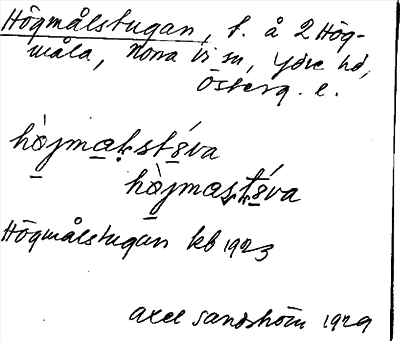 Högmålstugan, t. å 2 Hög-
måla, Norra Vi sn, Ydre hd,
Österg. l.
hòjmaḷstśva
hòjmaʂtśva
Högmålstugan kb 1923
Axel Sandström 1929